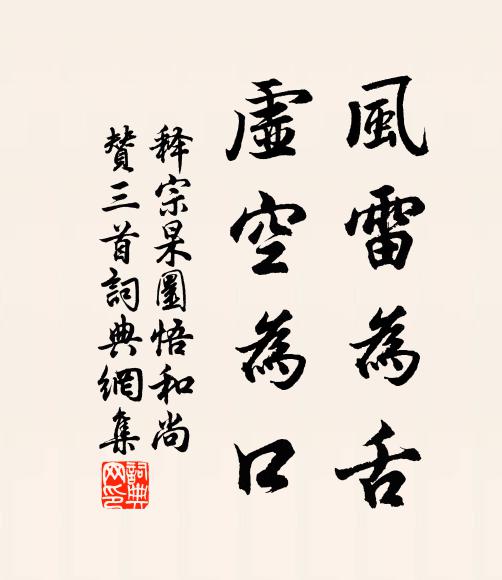 風雷為舌
虛空為口
释宗杲圜悟和尚
贊三首詞典網集
詞典網印